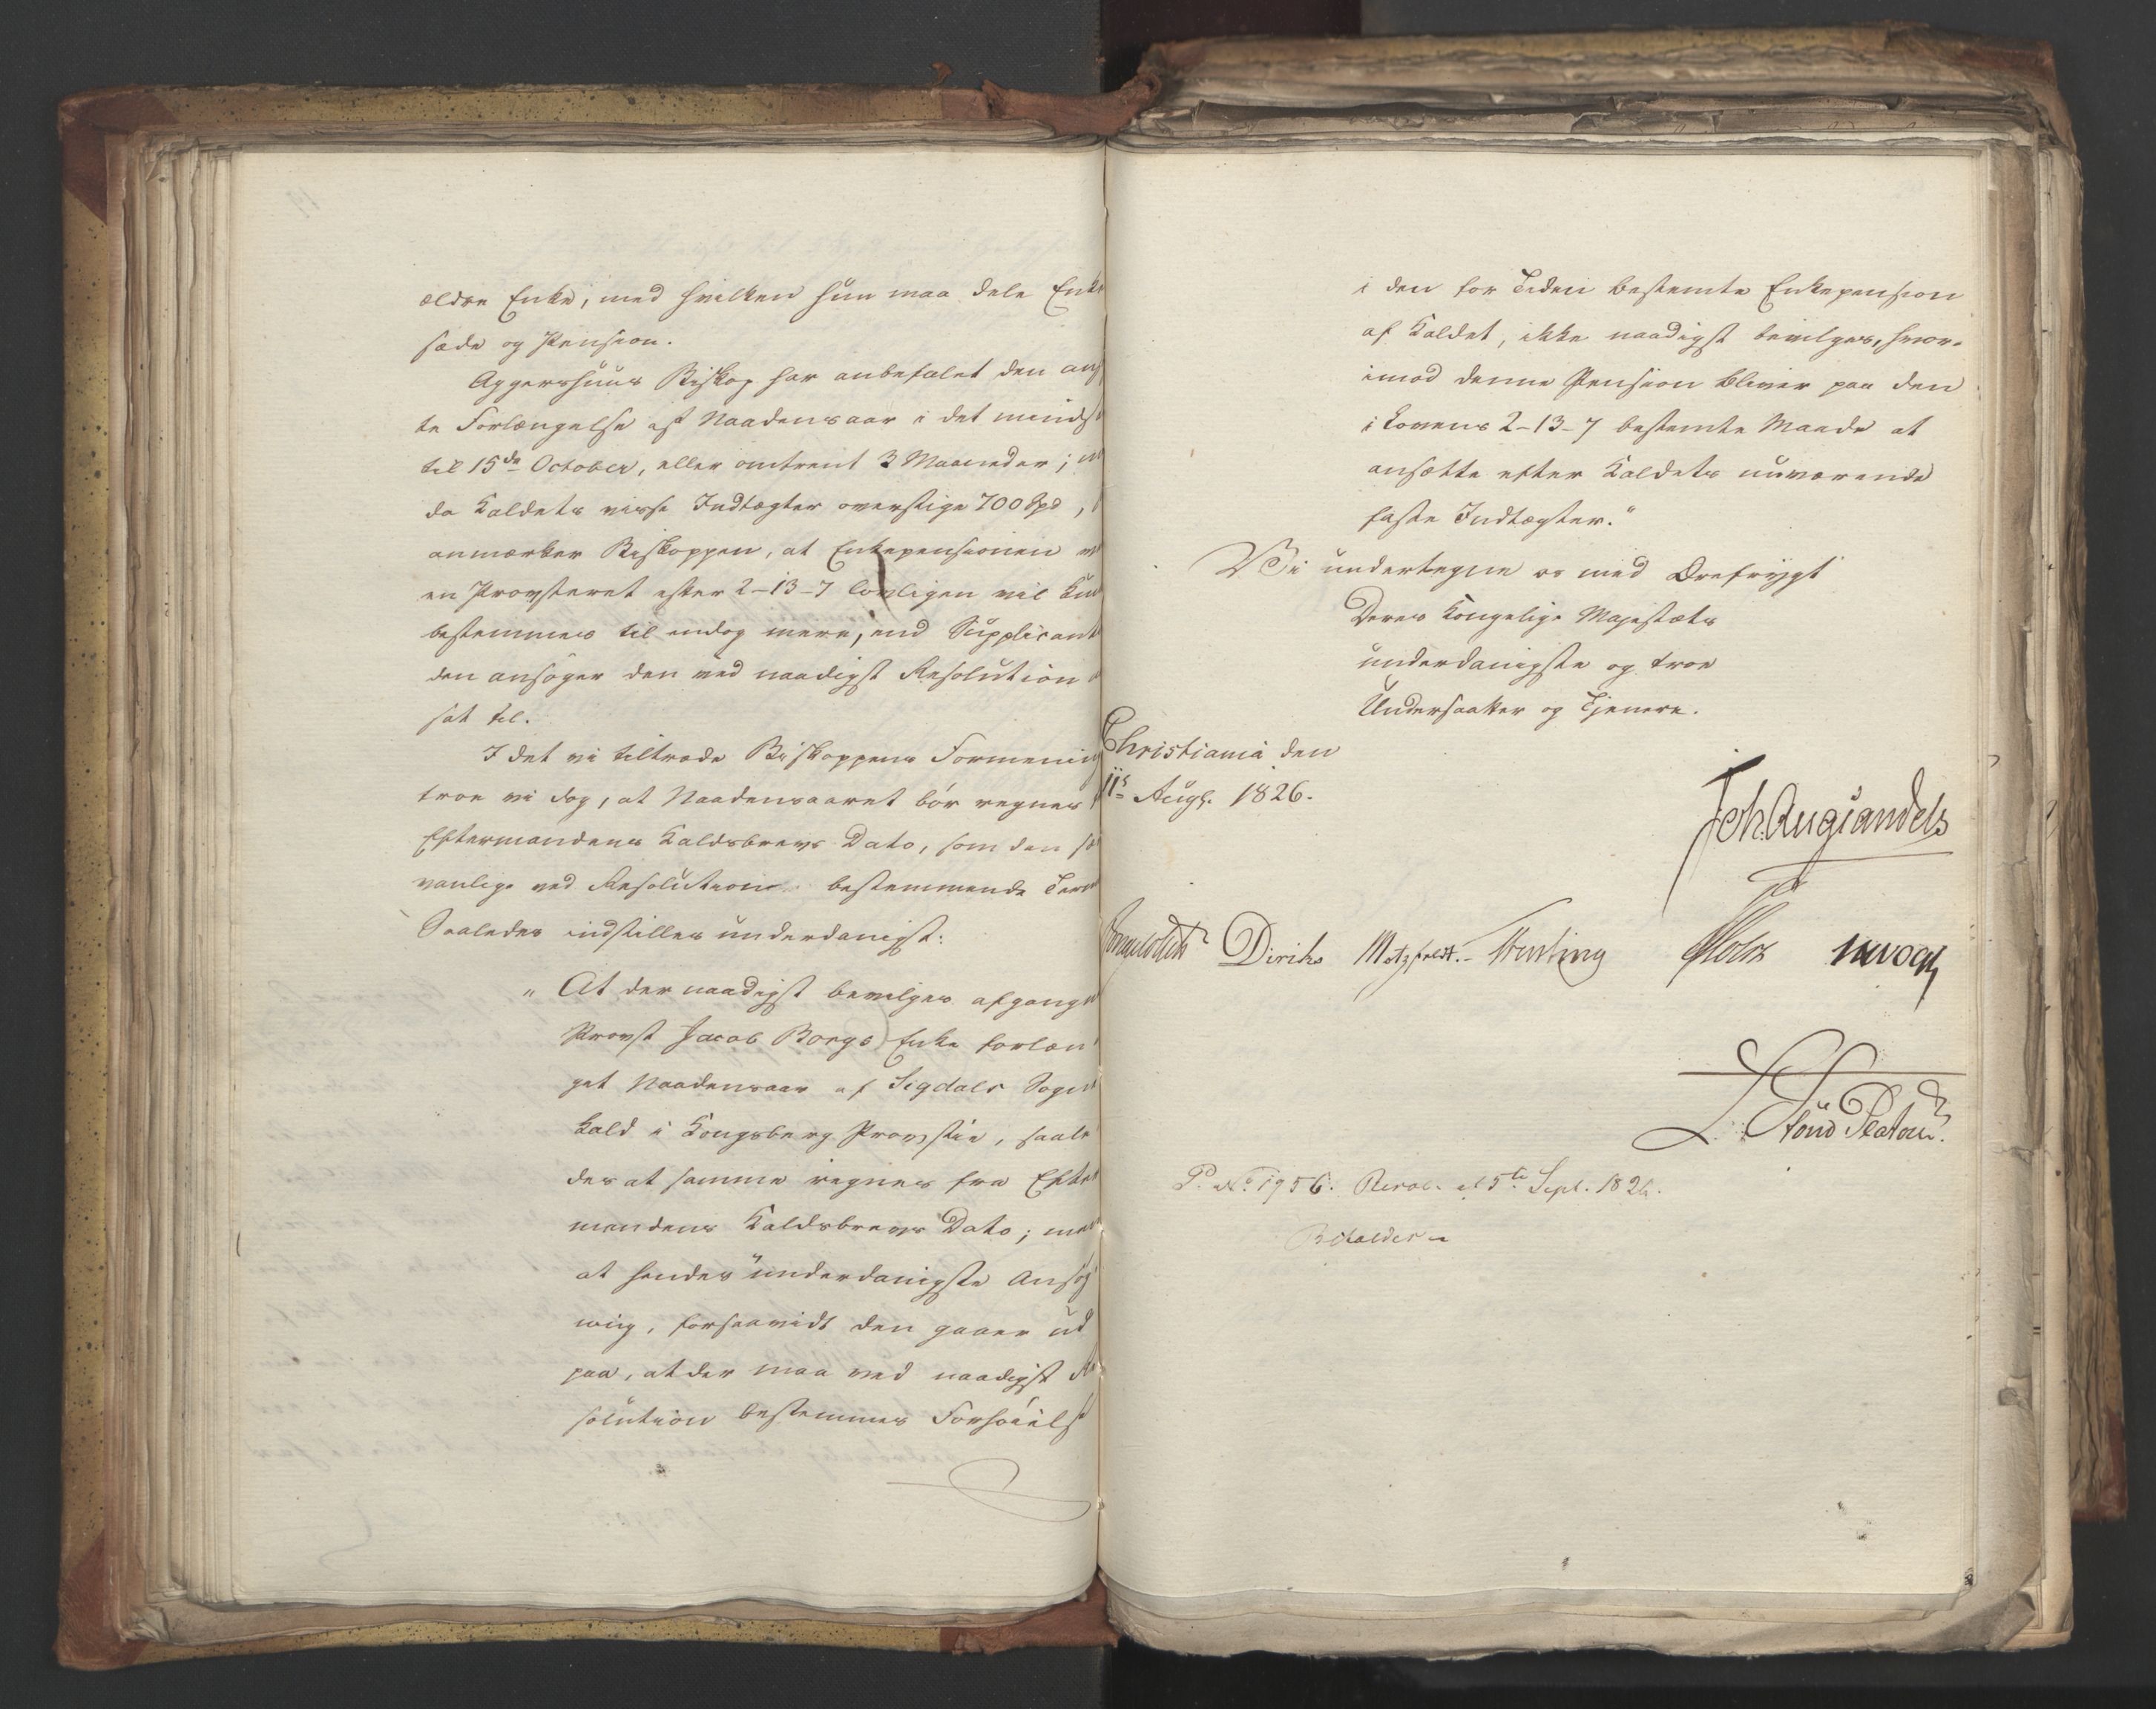 ældre Enke, med hvilken hun maa dele Enke
sæde og Pension.
Aggershuus Biskop har anbefalet den ansøg
te Forlængelse af Naadensaar i det mindste
til 15de October, eller omtrent 3 Maaneder;
da Kaldets visse Indtægter overstige 700 Spd,
anmærker Biskoppen, at Enkepensionen
en Provsteret efter 2-13-7 lovligen vil kun
bestemmes til endog mere, end Supplicant
den ansøger den ved naadigst Resolution
sat til.
I det vi tiltræde Biskoppens Formening
troe vi dog, at Naadensaaret bør regnes
Eftermandens Kaldsbrevs Dato, som den
vanlige ved Resolution bestemmende Term
Saaledes indstilles underdanigst:
„ At der naadigst bevilges afgangne
Provst Jacob Borgs Enke forlæn
get Naadensaar af Sigdals Sogne
kald i Kongsberg Provstie, saale
des at samme regnes fra Efter
mandens Kaldsbrevs Dato; men
at hendes underdanigste Ansøg
ning, forsaavidt den gaaer ud
paa, at der maa ved naadigst Re
solution bestemmes Forhøielse
i den for Tiden bestemte Enkepension
af Kaldet, ikke naadigst bevilges, hvor-
imod denne Pension bliver paa den
i Lovens 2-13-7 bestemte Maade at
ansætte efter Kaldets nuværende
faste Indtægter."
Vi undertegne os med Ærefrygt
Deres Kongelige Majestæts
underdanigste og troe
Undersaatter og Tjenere.
Christiania den
11te Augt. 1826.
Joh. Aug Sandels
Diriks Motzfeldt. Treschow Holst
Stoud Platou.
P. No. 1956. Resol. af 5te Sept. 1826.
Bifaldes